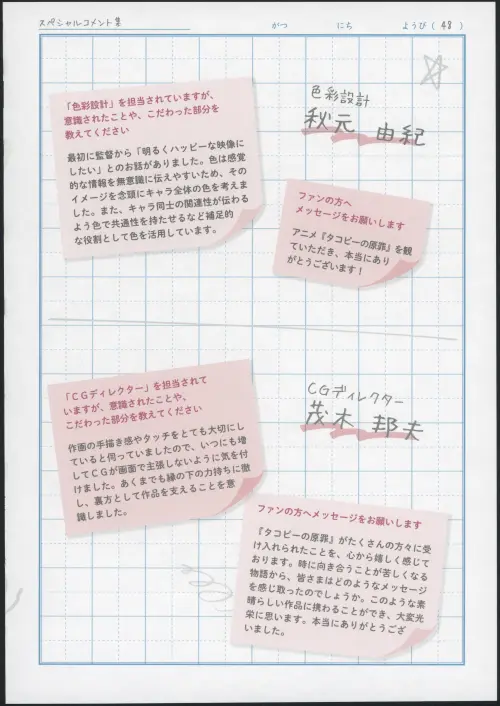 スペシャルコメント集
がつ にち ようび ( 48 )
色彩設計
秋元 由紀
「色彩設計」を担当されていますが、
意識されたことや、こだわった部分を
教えてください
最初に監督から「明るくハッピーな映像に
したい」とのお話がありました。色は感覚
的な情報を無意識に伝えやすいため、その
イメージを念頭にキャラ全体の色を考えま
した。また、キャラ同士の関連性が伝わる
よう色で共通性を持たせるなど補足的
な役割として色を活用しています。
ファンの方へ
メッセージをお願いします
アニメ『タコピーの原罪』を観
ていただき、本当にあり
がとうございます！
CGディレクター
茂木 邦夫
「CGディレクター」を担当されて
いますが、意識されたことや、
こだわった部分を教えてください
作画の手描き感やタッチをとても大切にし
ていると伺っていましたので、いつにも増
してCGが画面で主張しないように気を付
けました。あくまでも縁の下の力持ちに徹
し、裏方として作品を支えることを意
識しました。
ファンの方へメッセージをお願いします
『タコピーの原罪』がたくさんの方々に受
け入れられたことを、心から嬉しく感じて
おります。時に向き合うことが苦しくなる
物語から、皆さまはどのようなメッセージ
を感じ取ったのでしょうか。このような素
晴らしい作品に携わることができ、大変光
栄に思います。本当にありがとうござ
いました。